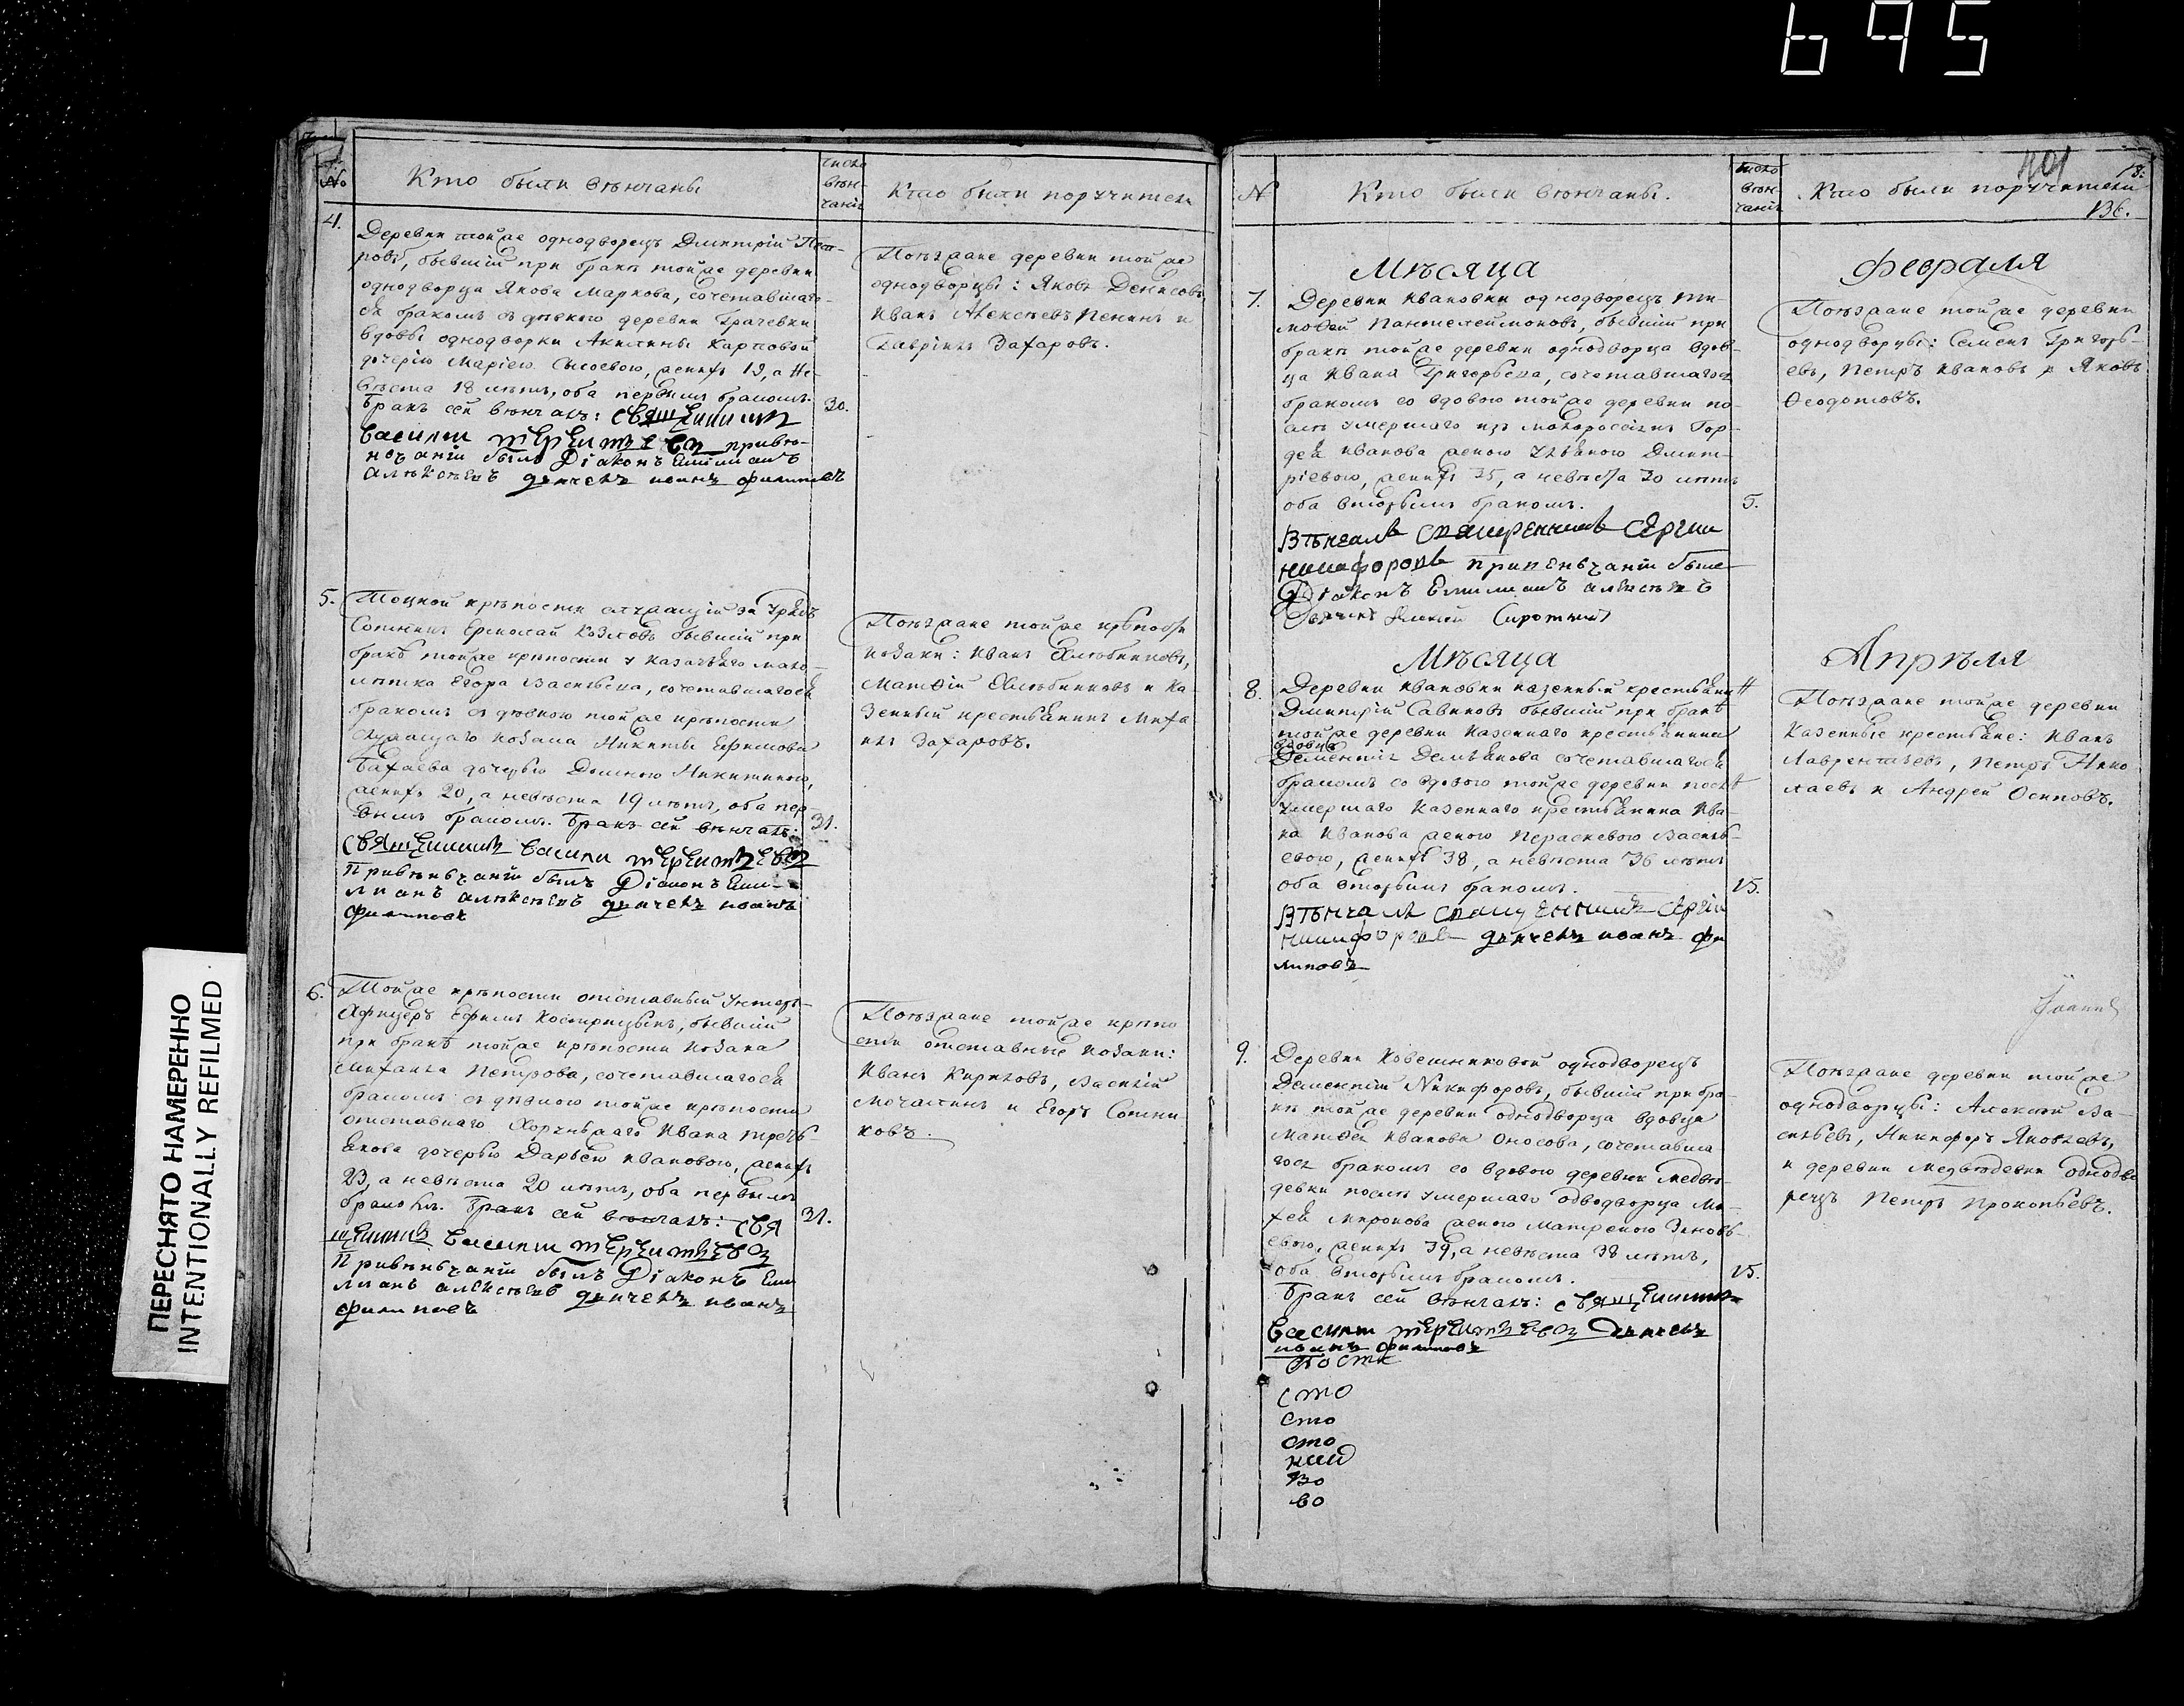 695
ПЕРЕСНЯТО НАМЕРЕННО
INTENTIONALLY REFILMED
№
Кто были вѣнчаны
число
вѣн-
чанія
Кто были поручители
4.
Деревни тойже однодворецъ Дмитрій Пет-
ровъ, бывшій при бракѣ тойже деревни
однодворца Якова Маркова, сочетавшаго-
ся бракомъ съ дѣвкою деревни Грачевки
вдовы однодворки Акилины Карповой
дочерію Маріею Сысоевою, женихъ 19, а не-
вѣста 18 лѣтъ, оба первымъ бракомъ.
Бракъ сей вѣнчалъ: священникъ
30.
василии терентьевъ при вѣ-
нчаніи былъ Діаконъ Емилианъ
алѣксѣевъ дьячекъ иванъ филиповъ
Поѣзжане деревни тойже
однодворцы: Яковъ Денисовъ
Иванъ Алексѣевъ Пенинъ и
Гаврінлъ Захаровъ.
5.
Тоцкой крѣпости служащій за Урядъ
Сотникъ Ермолай Козловъ бывшій при
бракѣ тойже крѣпости у казачьяго мало-
лѣтка Егора Васильева, сочетавшагося
бракомъ съ дѣвкою тойже крѣпости
служащаго козака Никиты Ефимова
дочерью Домною Никитиною,
женихъ 20, а невѣста 19 лѣтъ, оба пер-
вымъ бракомъ. Бракъ сей вѣнчалъ:
31.
священникъ василии терентьевъ
При вѣньчаніи былъ Діаконъ Еми-
лианъ алѣксѣевъ дьячекъ иванъ
филиповъ
Поѣзжане тойже крѣпости
козаки: Иванъ
Матвій и ка-
зенный крестьянинъ Миха
илъ Захаровъ.
6.
Тойже крѣпости отставный унтеръ-
Афицеръ Ефимъ Кострицынъ, бывшій
при бракѣ тойже крѣпости козака
Михаила Петрова, сочетавшагося
бракомъ съ дѣвкою тойже крѣпости
отставнаго Хорунжаго Ивана Треть-
якова дочерью Дарьею Ивановою, женихъ
23, а невѣста 20 лѣтъ, оба первымъ
бракомъ. Бракъ сей вѣнчалъ: свя
31.
щенникъ василии терентьевъ
При вѣньчаніи былъ Діаконъ Еми
лианъ алѣксѣевъ дьячекъ иванъ
филиповъ
Поѣзжане тойже крѣпо
сти отставные козаки:
Иванъ Кириловъ, Василій
Мочалинъ и Егоръ Сотни
ковъ.
401
18.
136.
№
Кто были вѣнчаны.
число
вѣн-
чанія
Кто были поручители
Мѣсяца
Февраля
7.
Деревни Ивановки однодворецъ Ти-
мофей Пантелеймоновъ, бывшій при
бракѣ тойже деревни однодворца вдов-
ца Ивана Григорьева, сочетавшагося
бракомъ со вдовою тойже деревни по-
слѣ умершаго изъ малороссіянъ Гор-
дея Иванова женою Ульяною Дмит-
ріевою, женихъ 35, а невѣста 30 лѣтъ
оба вторымъ бракомъ.
5.
Вѣнчалъ священникъ Сергии
никифоровъ при вѣньчаніи былъ
Діаконъ Емилианъ алѣксѣевъ
Дьячикъ Алексѣй Сироткинъ
Поѣзжане тойже деревни
однодворцы: Семенъ Григорь-
евъ, Петръ Ивановъ и Яковъ
Ѳеодотовъ.
Мѣсяца
Апрѣля
8.
Деревни Ивановки казенный крестьянинъ
Дмитрій Савиновъ бывшій при бракѣ
тойже деревни казеннаго крестьянина
вдовца
Дементія Демьянова сочетавшагося
бракомъ со вдовою тойже деревни послѣ
умершаго казеннаго крестьянина Ива-
на Иванова женою Пераскевою Василь-
евою, женихъ 38, а невѣста 36 лѣтъ
оба вторымъ бракомъ.
15.
Вѣнчалъ священникъ Сергіи
никифоровъ дьячекъ иванъ фи
липовъ
Поѣзжане тойже деревни
Казенные крестьяне: Иванъ
Лаврентьевъ, Петръ Нико
лаевъ и Андрей Осиповъ.
9.
Деревни Ковешниковой однодворецъ
Дементій Никифоровъ, бывшій при бра-
кѣ тойже деревни однодворца вдовца
Матвея Иванова Оносова, сочетавша
гося бракомъ со вдовою деревни Медвѣ-
девки послѣ умершаго однодворца Ма-
ѳея Миронова женою Матреною Зиновь-
евою, женихъ 39, а невѣста 38 лѣтъ,
оба вторымъ бракомъ.
15.
Бракъ сей вѣнчалъ: священникъ
василии терентьевъ дьячекъ
иванъ филиповъ
сто
сто
сто
во
во
Поѣзжане деревни тойже
однодворцы: Алексѣй Ва-
сильевъ, Никифоръ Яковлевъ,
и деревни Медвѣдевки однодво
рецъ Петръ Прокопьевъ.